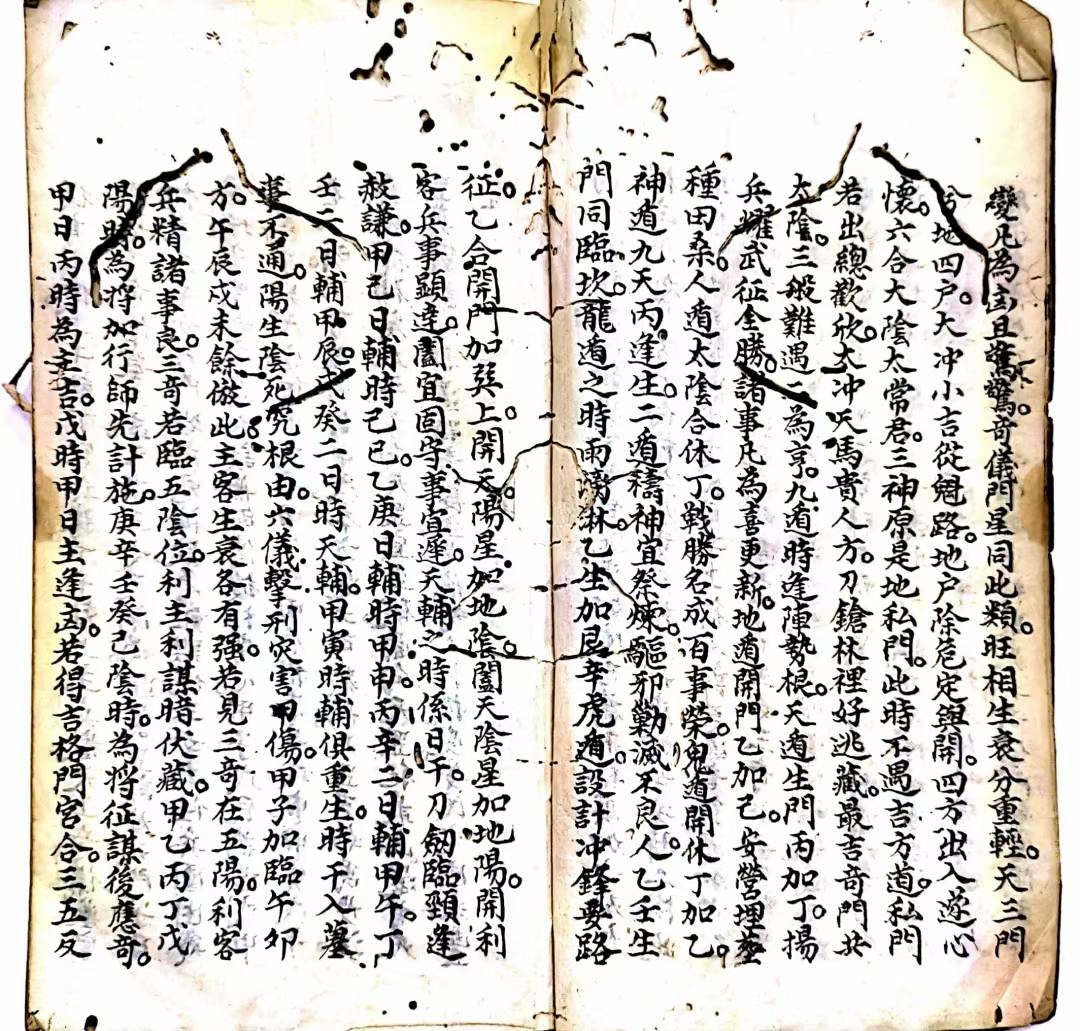 變凡為凶且驚驚。奇儀門星同此類。旺相生衰分重輕。天三門
兮地四户。大冲小吉從魁路。地户除危定與開。四方出入遂心
懷。六合大陰太常君。三神原是地私門。此時不遇吉方道。私門
若出總歡欣。太冲天馬貴人方。刀鎗林裡好逃藏。最吉奇門共
太陰。三般難遇二為亨。九遁時逢陣勢根。天遁生門丙加丁。揚
兵耀武征全勝。諸事凡為喜更新。地遁開門乙加己。安營埋
種田桑。人遁太陰合休丁。戰勝名成百事榮。鬼遁開休丁加乙。
神遁九天丙逢生。二遁禱神宜祭煉。驅邪勦滅不良人。乙壬生
門同臨坎。龍遁之時雨淋。乙生加艮辛虎遁。設計冲鋒要路
征。乙合開門加巽上。開天陽星加地陰。闔天陰星加地陽。開利
客兵事顯達。闔宜固守事宜遲。天輔之時係日干。刀劍臨頸逢
赦謙。甲己日輔時己巳。乙庚日輔時甲申。丙辛二日輔甲午。丁
壬二日輔甲辰。戊癸二日時天輔。甲寅時輔俱重生。時干入墓
事不通。陽生陰死究根由。六儀擊刑災害甲傷。甲子加臨午卯
方。午辰戌未餘倣此。主客生衰各有强。若見三奇在五陽。利客
兵精諸事良。三奇若臨五陰位。利主利謀暗伏藏。甲乙丙丁戊
陽時。為將加行師先計施。庚辛壬癸己陰時。為將征謀後應奇。
甲日丙時為主吉。戊時甲日主逢凶。若得吉格門宮合。三五反